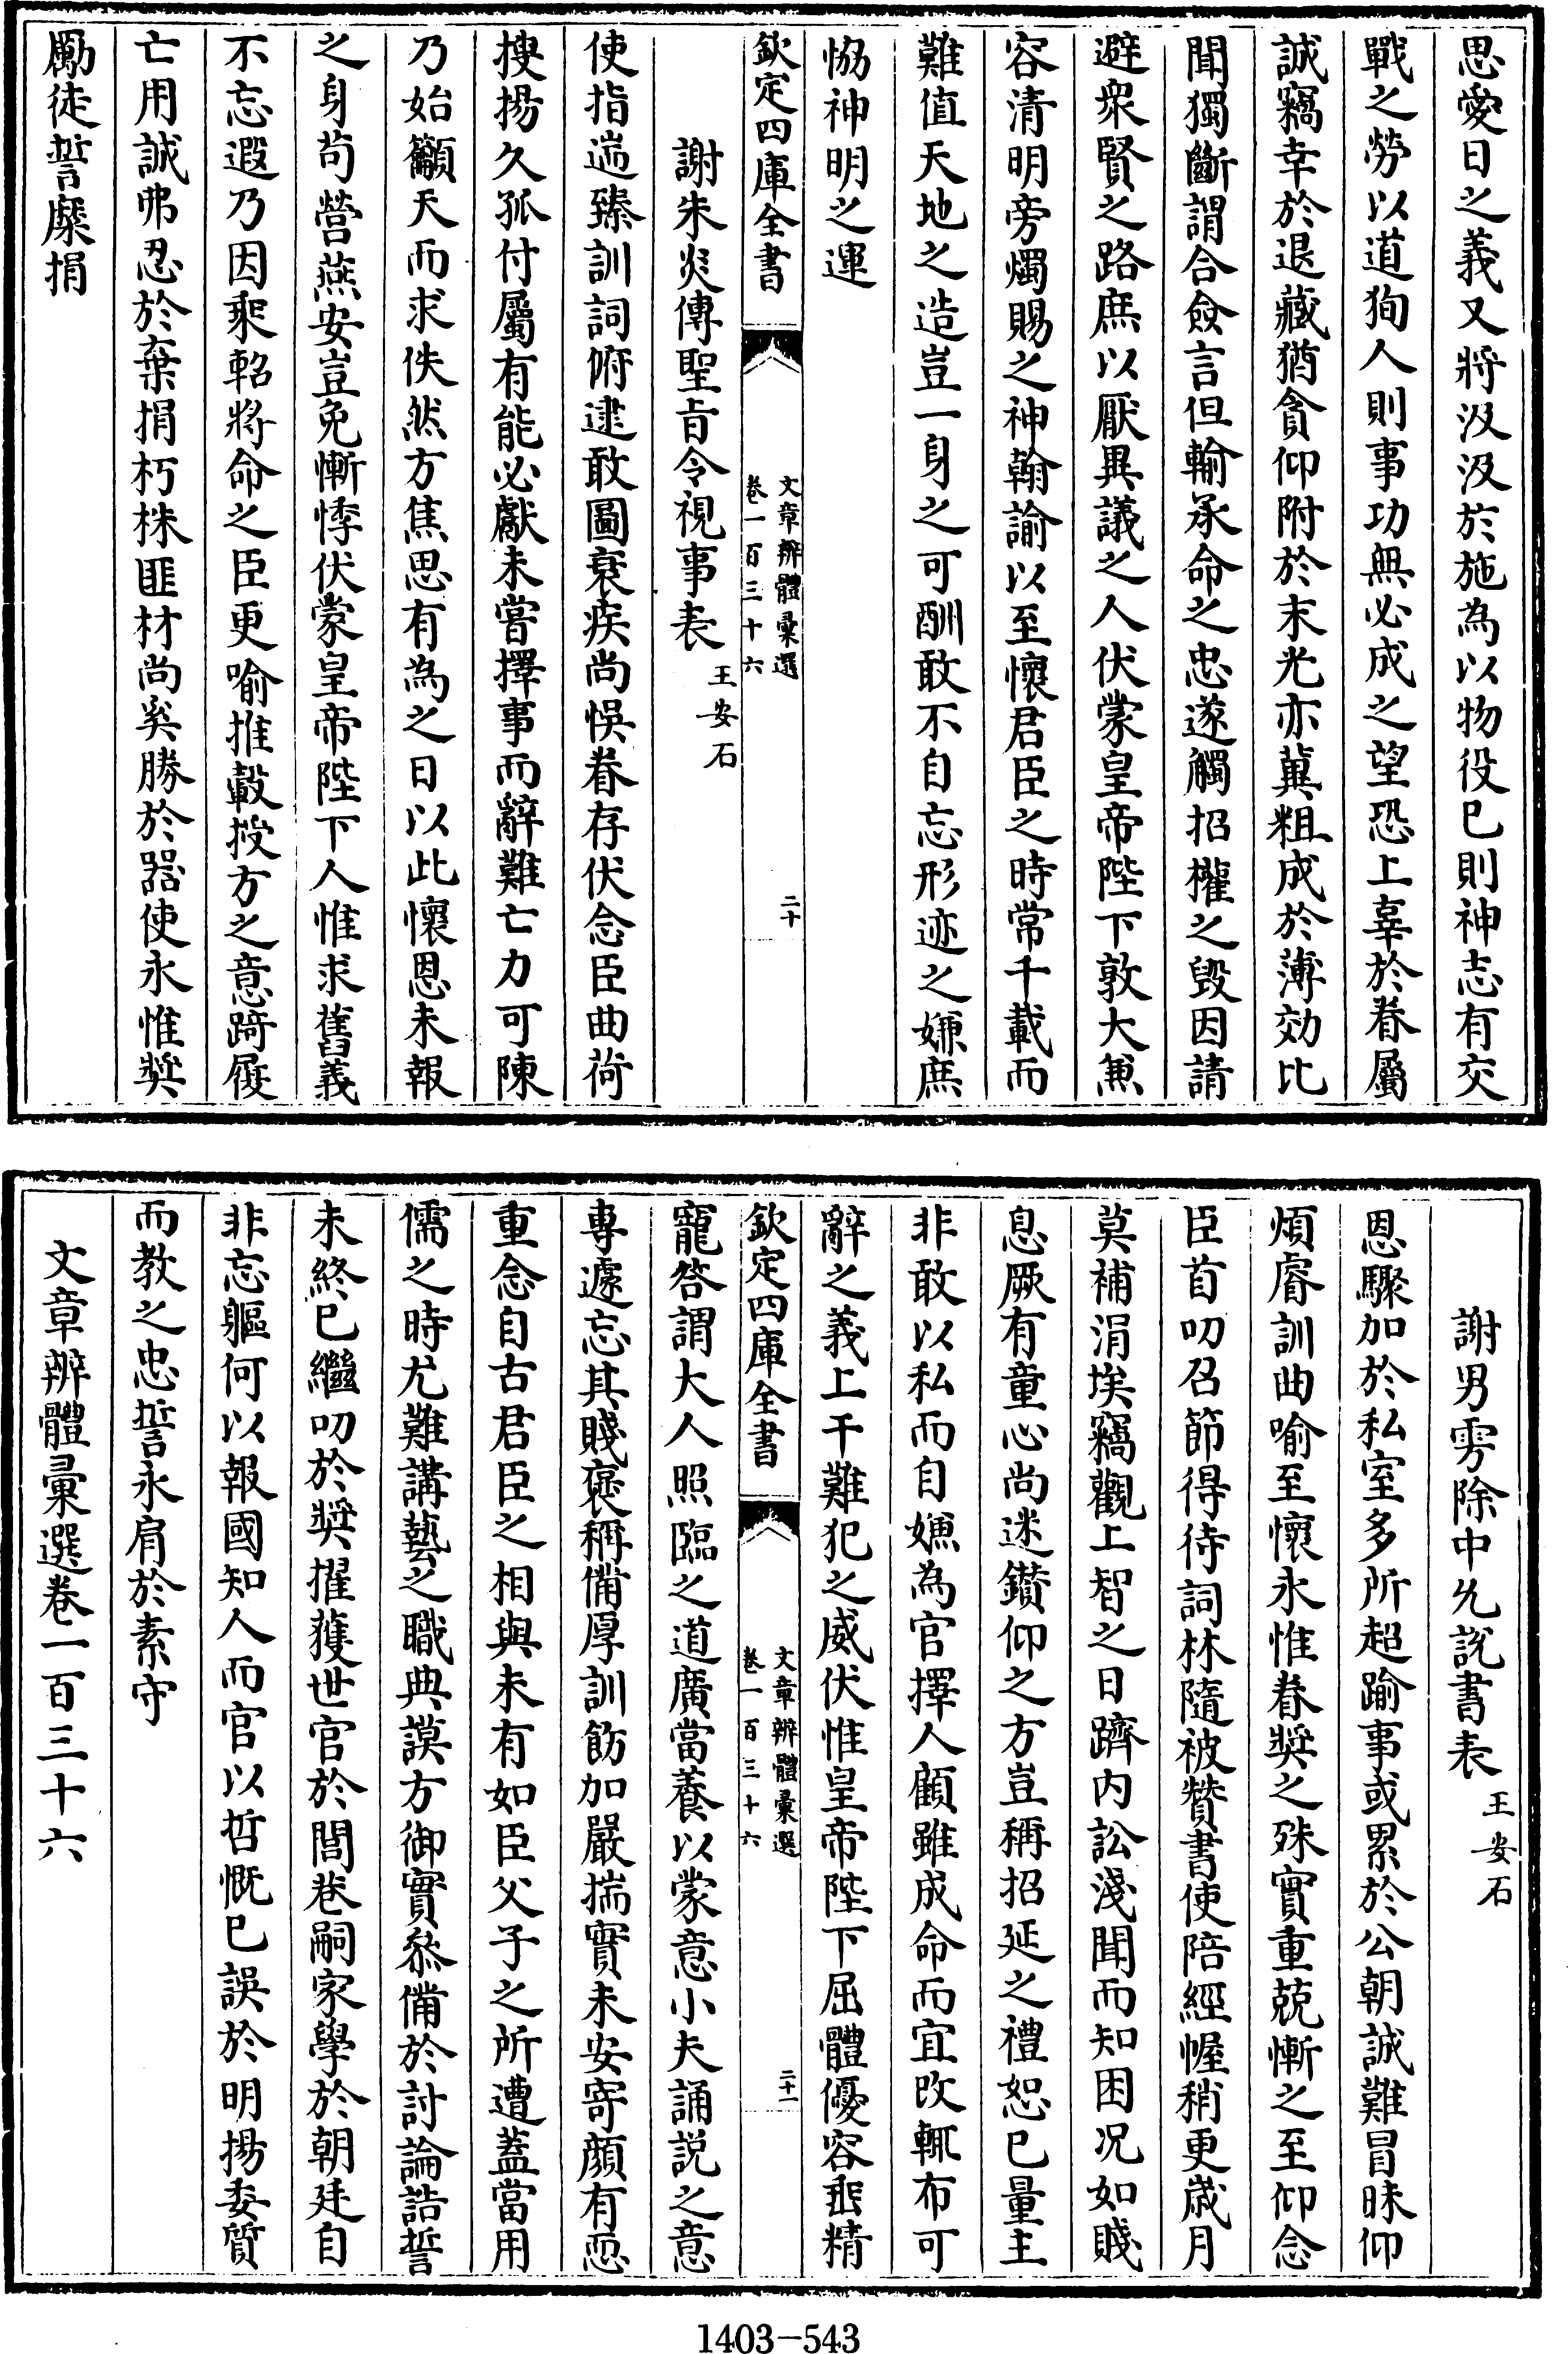 思愛日之義又將汲汲於施為以物役已則神志有交
戰之勞以道狥人則事功無必成之望恐上辜於眷屬
誠竊幸於退藏猶貪仰附於末光亦冀粗成於薄効比
聞獨斷謂合僉言但輸承命之忠遂觸招權之毁因請
避衆賢之路庶以厭異議之人伏蒙皇帝陛下敦大兼
容清明旁燭賜之神翰諭以至懷君臣之時常千載而
難值天地之造豈一身之可酬敢不自忘形迹之嫌庶
協神明之運
欽定四庫全書
文章辨體彙選
卷一百三十六
二十
謝朱炎傳聖旨令視事表
王安石
使指遄臻訓詞俯逮敢圖衰疾尚悞眷存伏念臣曲荷
搜揚久孤付屬有能必獻未嘗擇事而辭難亡力可陳
乃始籲天而求佚然方焦思有為之日以此懷恩未報
之身茍營燕安豈免慚悸伏蒙皇帝陛下人惟求舊義
不忘遐乃因乘軺將命之臣更喻推轂授方之意踦履
亡用誠弗忍於棄捐朽株匪材尚奚勝於器使永惟奬
勵徒誓糜捐
謝男雱除中允説書表
王安石
恩驟加於私室多所超踰事或累於公朝誠難冒昧仰
煩睿訓曲喻至懷永惟眷奬之殊實重兢慚之至仰念
臣首叨召節得待詞林隨被贊書使陪經幄稍更歲月
莫補涓埃竊觀上智之日躋内訟淺聞而知困况如賤
息厥有童心尚迷鑚仰之方豈稱招延之禮恕已量主
非敢以私而自嫌為官擇人顧雖成命而宜改輒布可
辭之義上干難犯之威伏惟皇帝陛下屈體優容垂精
欽定四庫全書
文章辨體彙選
卷一百三十六
二十一
寵答謂大人照臨之道廣當養以蒙意小夫誦説之意
專遽忘其賤褒稱備厚訓飭加嚴揣實未安寄顔有恧
重念自古君臣之相與未有如臣父子之所遭蓋當用
儒之時尤難講藝之職典謨方御實叅備於討論誥誓
未終已繼叨於奬擢獲世官於閭巷嗣家學於朝廷自
非忘軀何以報國知人而官以哲慨已誤於明揚委質
而教之忠誓永肩於素守
文章辨體彙選卷一百三十六
1403-543